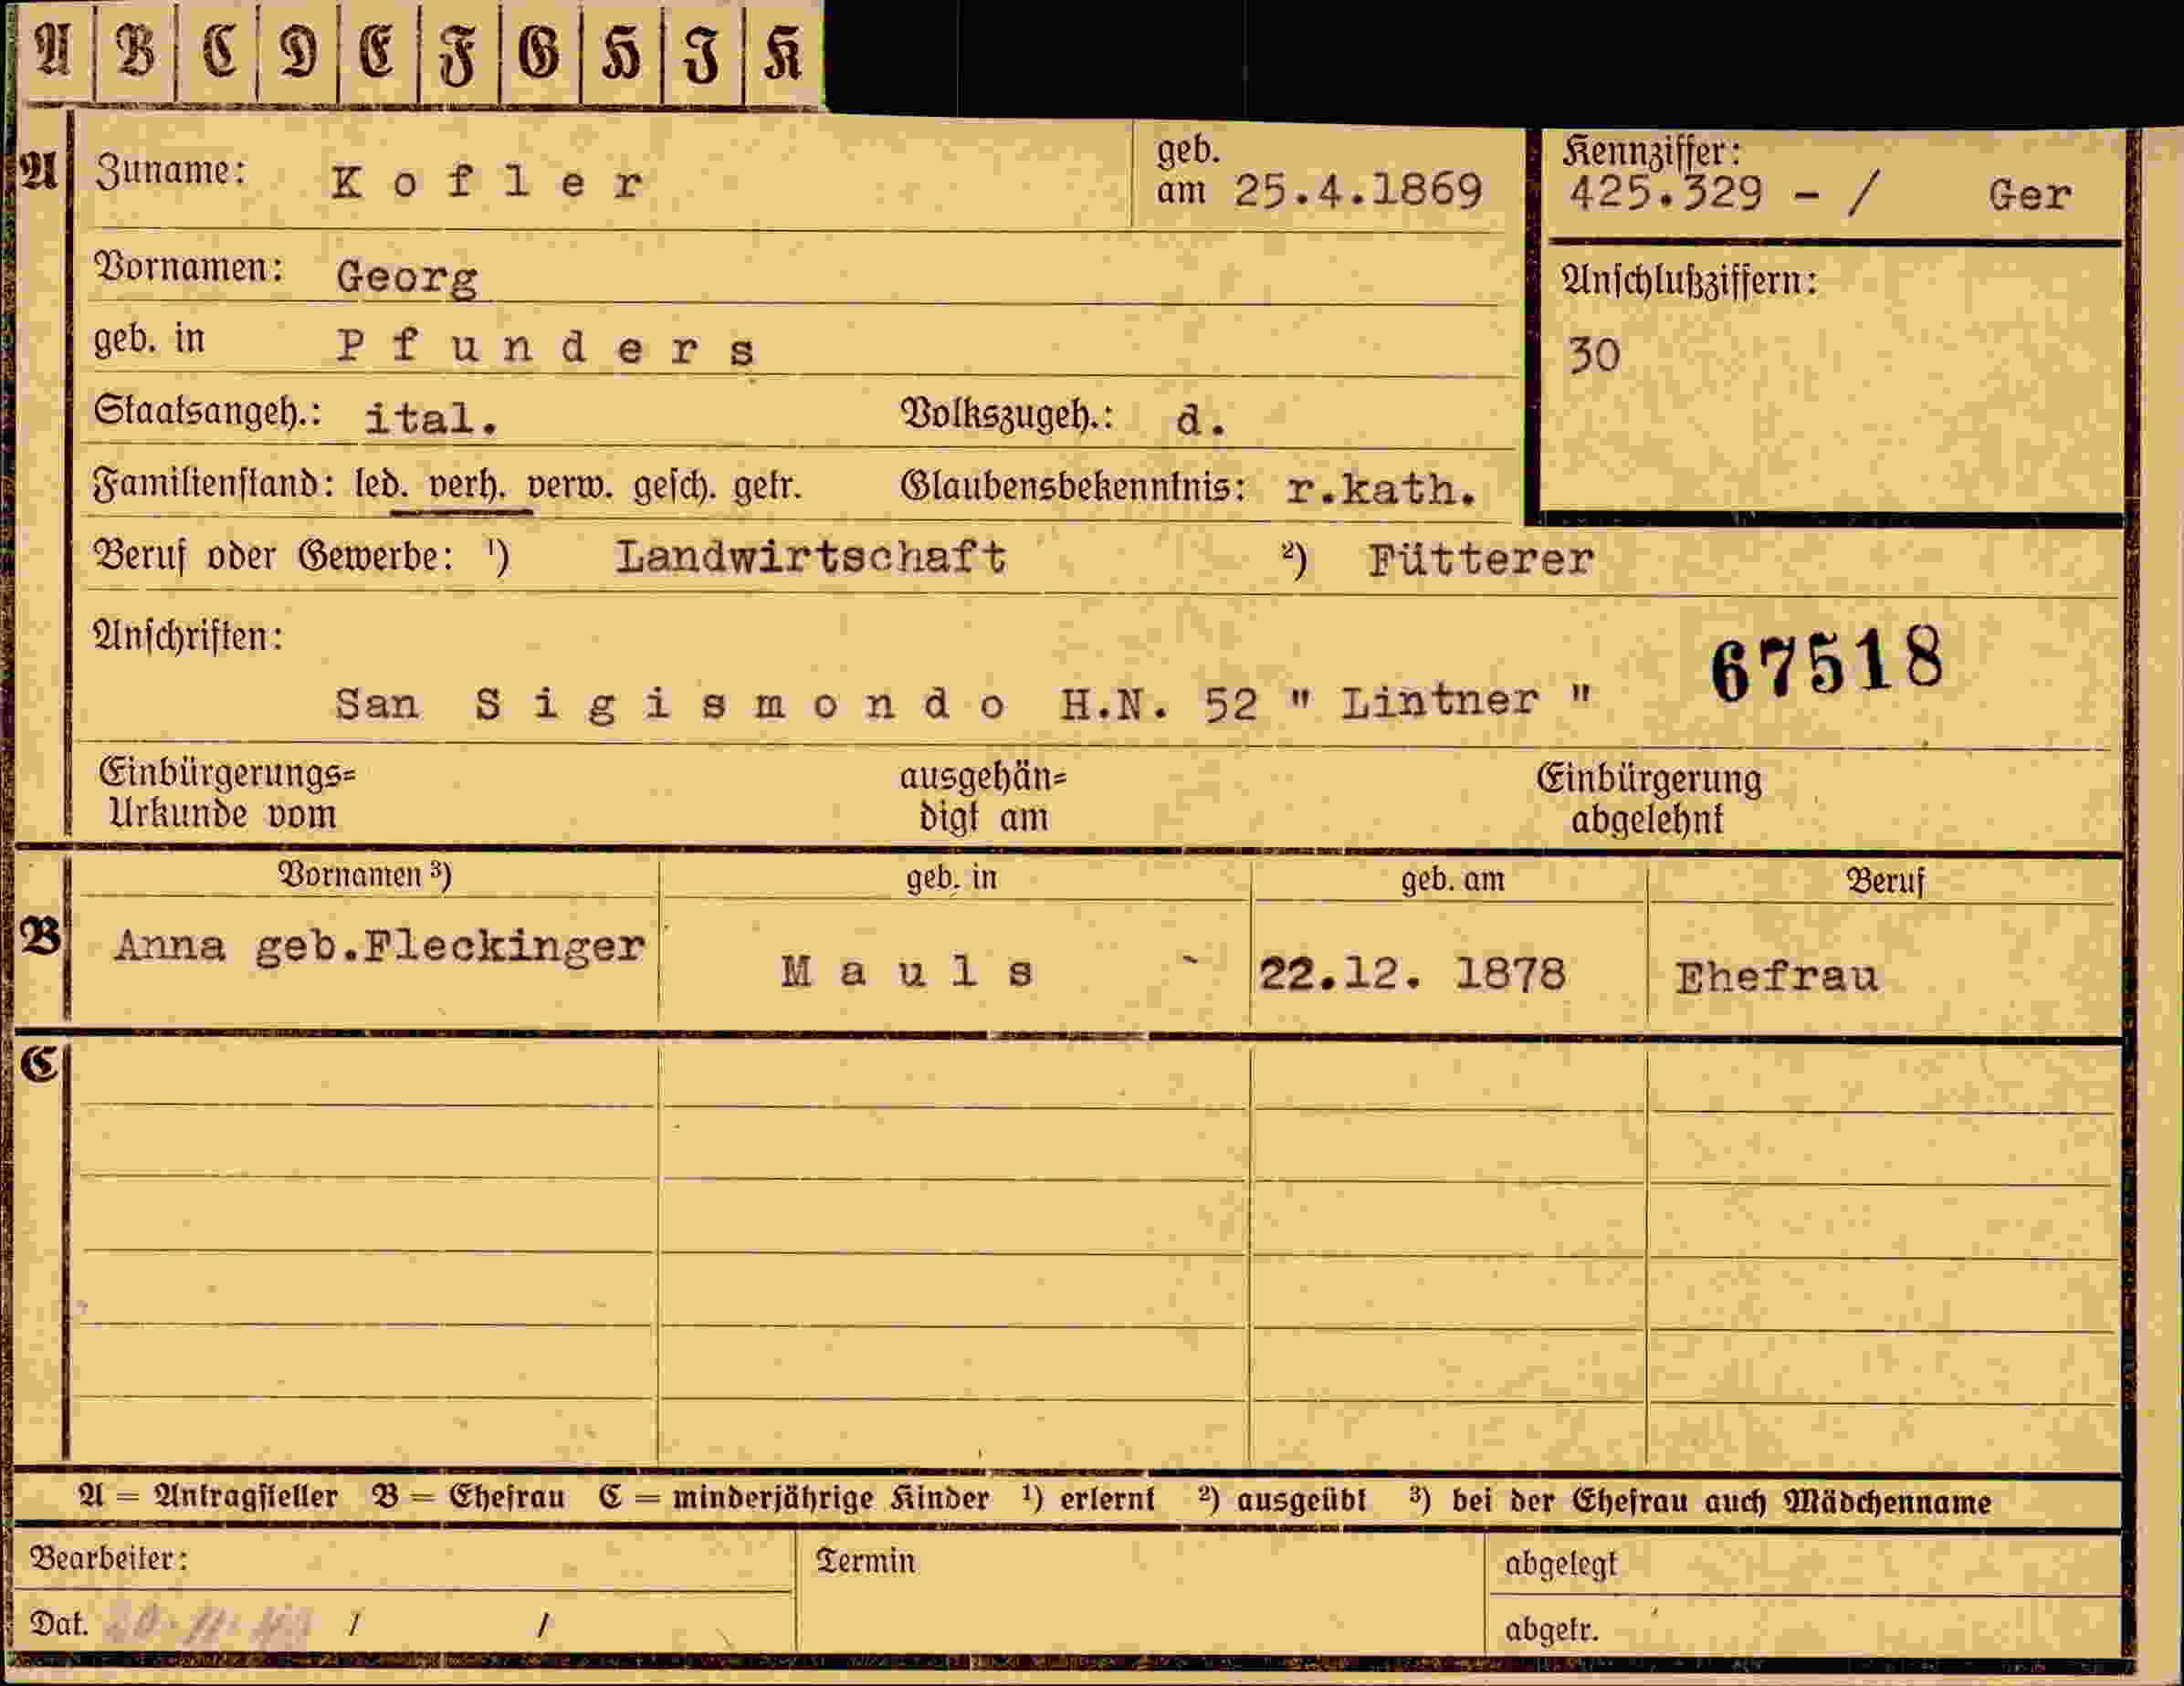 A B C D E F G H I K
A Zuname: Kofler geb. am 25.4.1869 Kennziffer: 425.329 - / Ger
Vornamen: Georg Anschlußziffern:
geb. in Pfunders 30
Staatsangeh.: ital. Volkszugeh.: d.
Familienstand: led. verh. verw. gesch. getr. Glaubensbekenntnis: r.kath.
Beruf oder Gewerbe: ¹) Landwirtschaft ²) Fütterer
Anschriften: 67518
San Sigismondo H.N. 52 " Lintner "
Einbürgerungs= ausgehän= Einbürgerung
Urkunde vom digt am abgelehnt
Vornamen ³) geb. in geb. am Beruf
B Anna geb.Fleckinger Mauls 22.12. 1878 Ehefrau
C
A = Antragsteller B = Ehefrau C = minderjährige Kinder ¹) erlernt ²) ausgeübt ³) bei der Ehefrau auch Mädchenname
Bearbeiter: Termin abgelegt
Dat. / / abgetr.